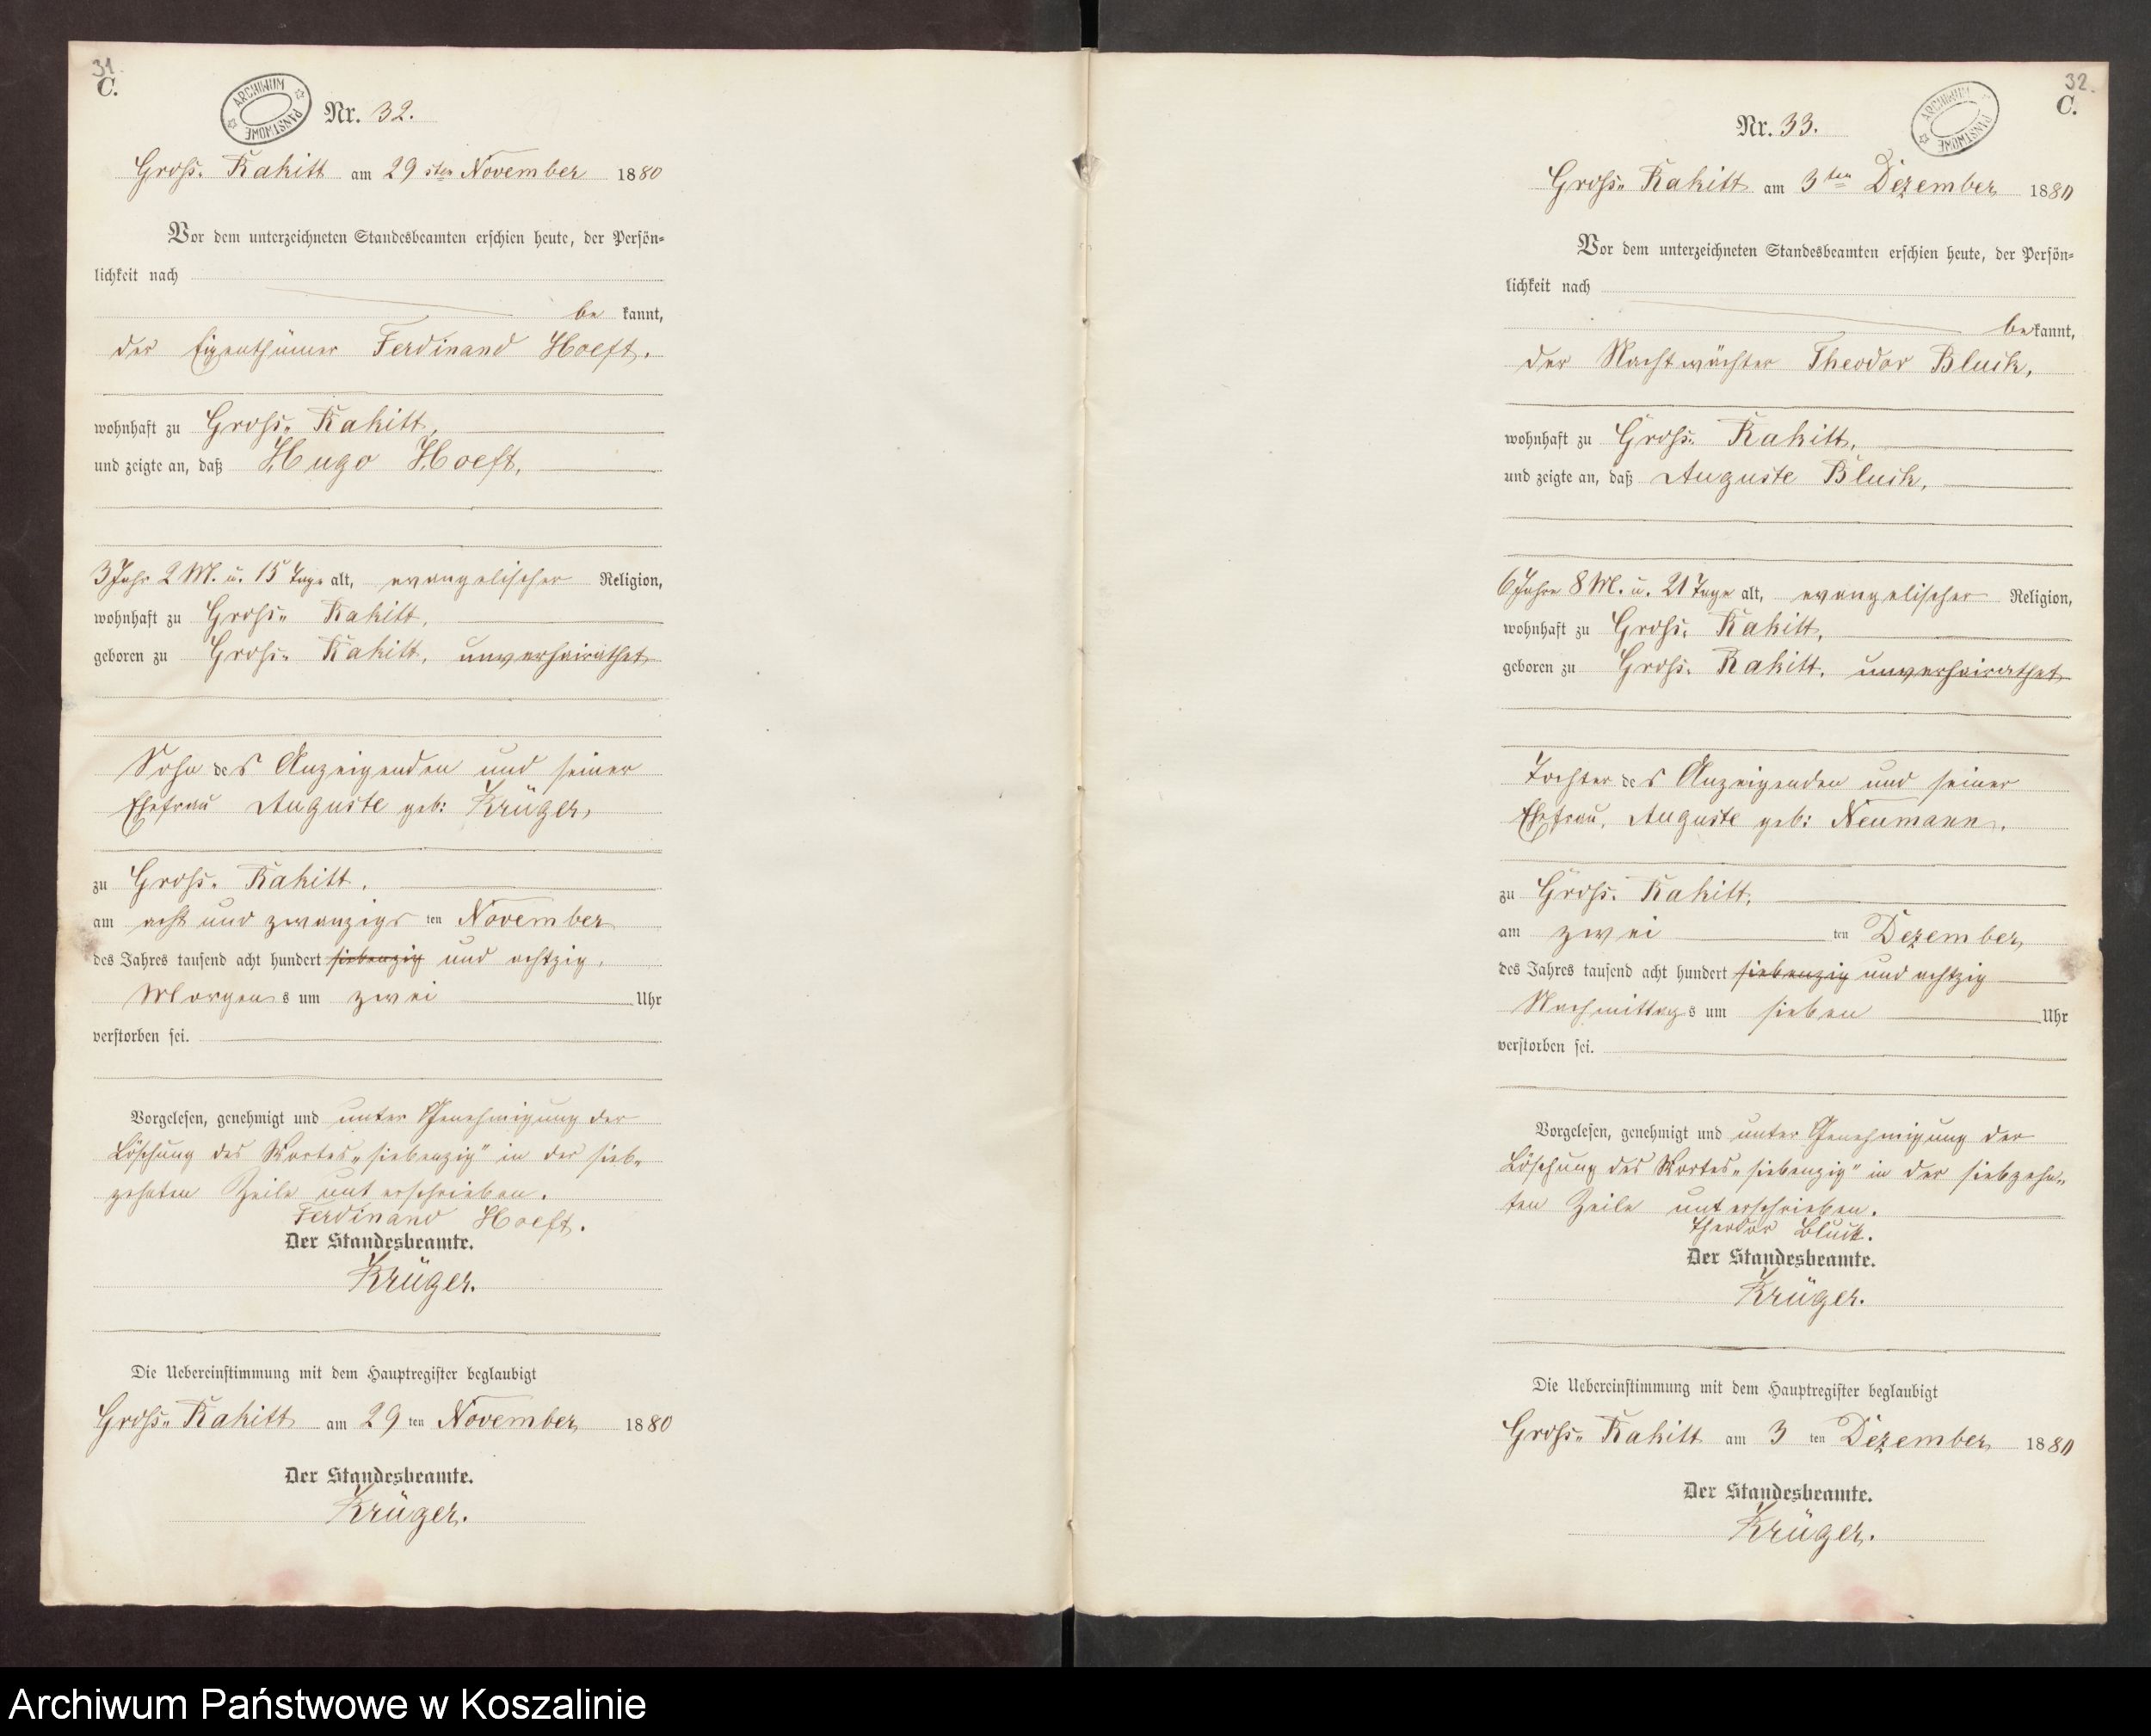 31.
C.
ARCHIWUM PAŃSTWOWE
Nr. 32.
Gross. Rakitt am 29 sten November 1880
Vor dem unterzeichneten Standesbeamten erschien heute, der Persön-
lichkeit nach
be kannt,
der Eigenthümer Ferdinand Hoeft.
wohnhaft zu Gross. Rakitt,
und zeigte an, daß Hugo Hoeft,
3 Jahr 2 M. u. 15 Tage alt, evangelischer Religion,
wohnhaft zu Gross. Rakitt,
geboren zu Gross. Rakitt, unverheirathet
Sohn des Anzeigenden und seiner
Ehefrau Auguste geb: Krüger,
zu Gross. Rakitt,
am acht und zwanzigs ten November
des Jahres tausend acht hundert siebenzig und achtzig,
Morgens um zwei Uhr
verstorben sei.
Vorgelesen, genehmigt und unter Genehmigung der
Löschung des Wortes „siebenzig" in der sieb-
zehnten Zeile unterschrieben.
Ferdinand Hoeft.
Der Standesbeamte.
Krüger.
Die Uebereinstimmung mit dem Hauptregister beglaubigt
Gross. Rakitt am 29 ten November 1880
Der Standesbeamte.
Krüger.
32.
C.
ARCHIWUM PAŃSTWOWE
Nr. 33.
Gross. Rakitt am 3 ten Dezember 1880
Vor dem unterzeichneten Standesbeamten erschien heute, der Persön-
lichkeit nach
bekannt,
der Nachtwächter Theodor Bluck,
wohnhaft zu Gross. Rakitt,
und zeigte an, daß Auguste Bluck,
6 Jahre 8 M. u. 21 Tage alt, evangelischer Religion,
wohnhaft zu Gross. Rakitt,
geboren zu Gross. Rakitt, unverheirathet
Tochter des Anzeigenden und seiner
Ehefrau, Auguste geb: Neumann,
zu Gross. Rakitt,
am zwei ten Dezember
des Jahres tausend acht hundert siebenzig und achtzig
Nachmittags um sieben Uhr
verstorben sei.
Vorgelesen, genehmigt und unter Genehmigung der
Löschung des Wortes „siebenzig" in der siebzehn-
ten Zeile unterschrieben.
Theodor Bluck.
Der Standesbeamte.
Krüger.
Die Uebereinstimmung mit dem Hauptregister beglaubigt
Gross. Rakitt am 3 ten Dezember 1880
Der Standesbeamte.
Krüger.
Archiwum Państwowe w Koszalinie